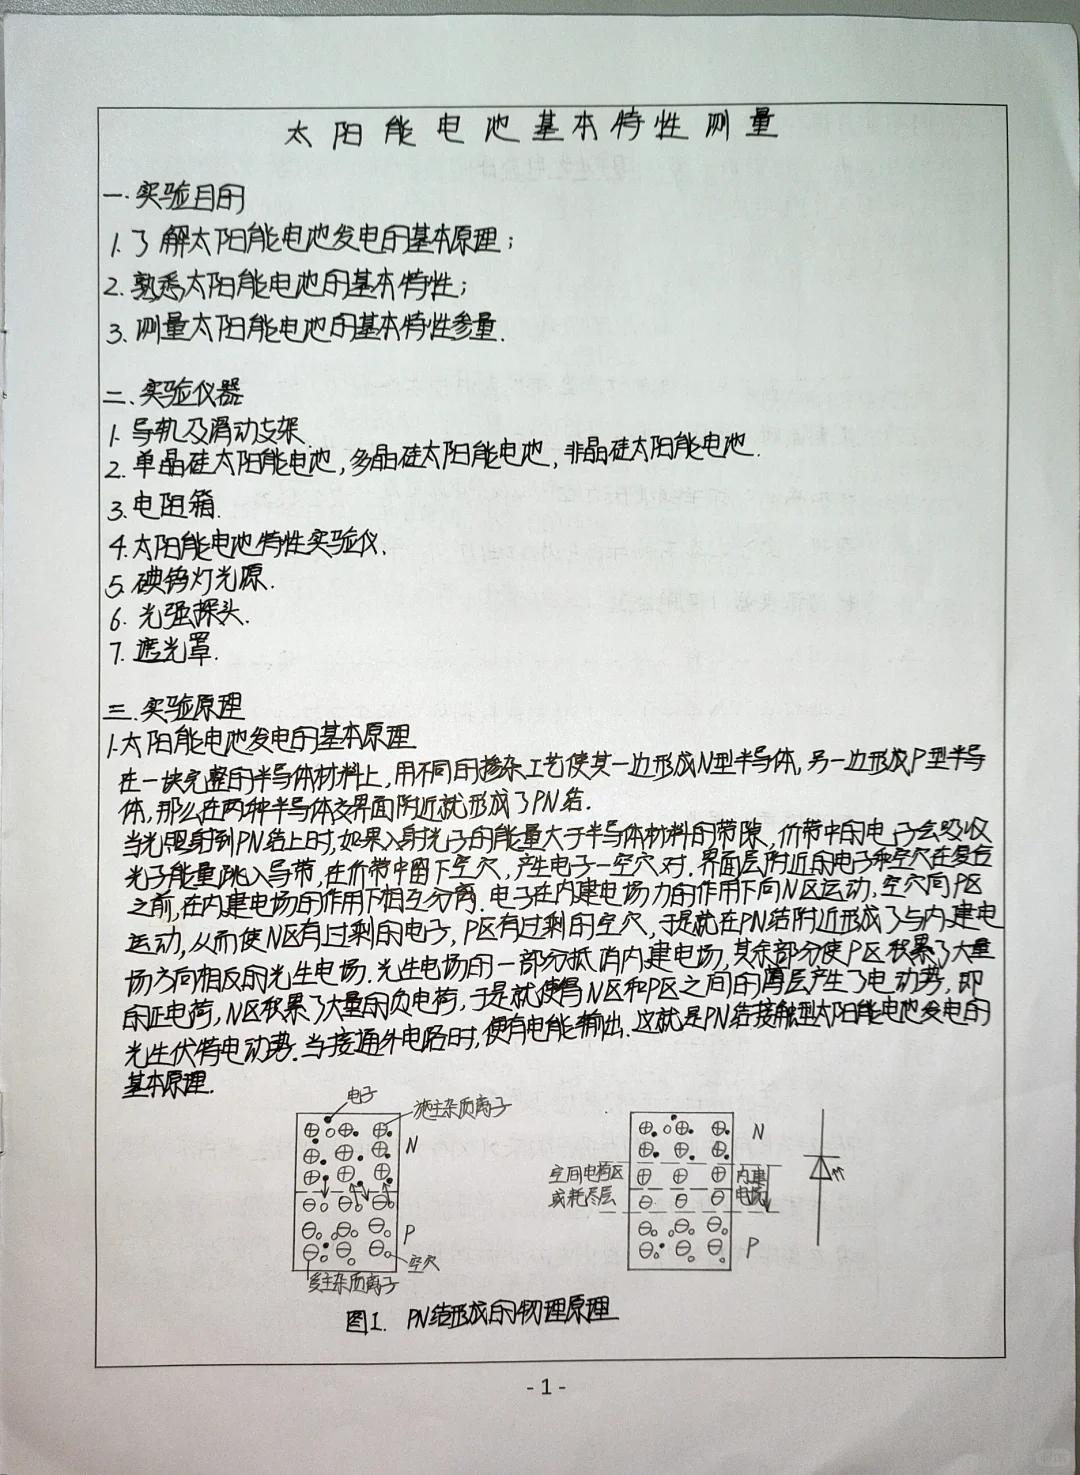 太阳能电池基本特性测量
一.实验目的
1.了解太阳能电池发电的基本原理;
2.熟悉太阳能电池的基本特性;
3.测量太阳能电池的基本特性参量.
二.实验仪器
1.导轨及滑动支架.
2.单晶硅太阳能电池,多晶硅太阳能电池,非晶硅太阳能电池.
3.电阻箱.
4.太阳能电池特性实验仪.
5.碘钨灯光源.
6.光强探头.
7.遮光罩.
三.实验原理
1.太阳能电池发电的基本原理
在一块完整的半导体材料上,用不同的掺杂工艺使其一边形成N型半导体,另一边形成P型半导
体,那么在两种半导体交界面附近就形成了PN结.
当光照射到PN结上时,如果入射光子的能量大于半导体材料的带隙,价带中的电子会吸收
光子能量跳入导带,在价带中留下空穴,产生电子-空穴对.界面层附近的电子和空穴在复合
之前,在内建电场的作用下相互分离.电子在内建电场力的作用下向N区运动,空穴向P区
运动,从而使N区有过剩的电子,P区有过剩的空穴,于是就在PN结附近形成了与内建电
场方向相反的光生电场.光生电场的一部分抵消内建电场,其余部分使P区积累了大量
的正电荷,N区积累了大量的负电荷,于是就使得N区和P区之间的薄层产生了电动势,即
光生伏特电动势.当接通外电路时,便有电能输出.这就是PN结接触型太阳能电池发电的
基本原理.
电子
施主杂质离子
N
P
空穴
受主杂质离子
N
空间电荷区
或耗尽层
内建
电场
P
图1. PN结形成的物理原理
- 1 -